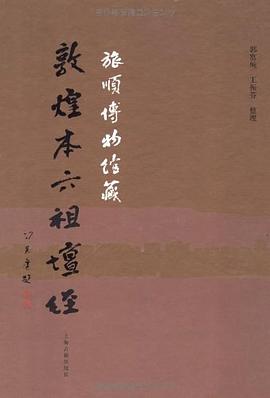 郭富純 王振芬 整理
旅順博物館藏
敦煌本六祖壇經
上海古籍出版社